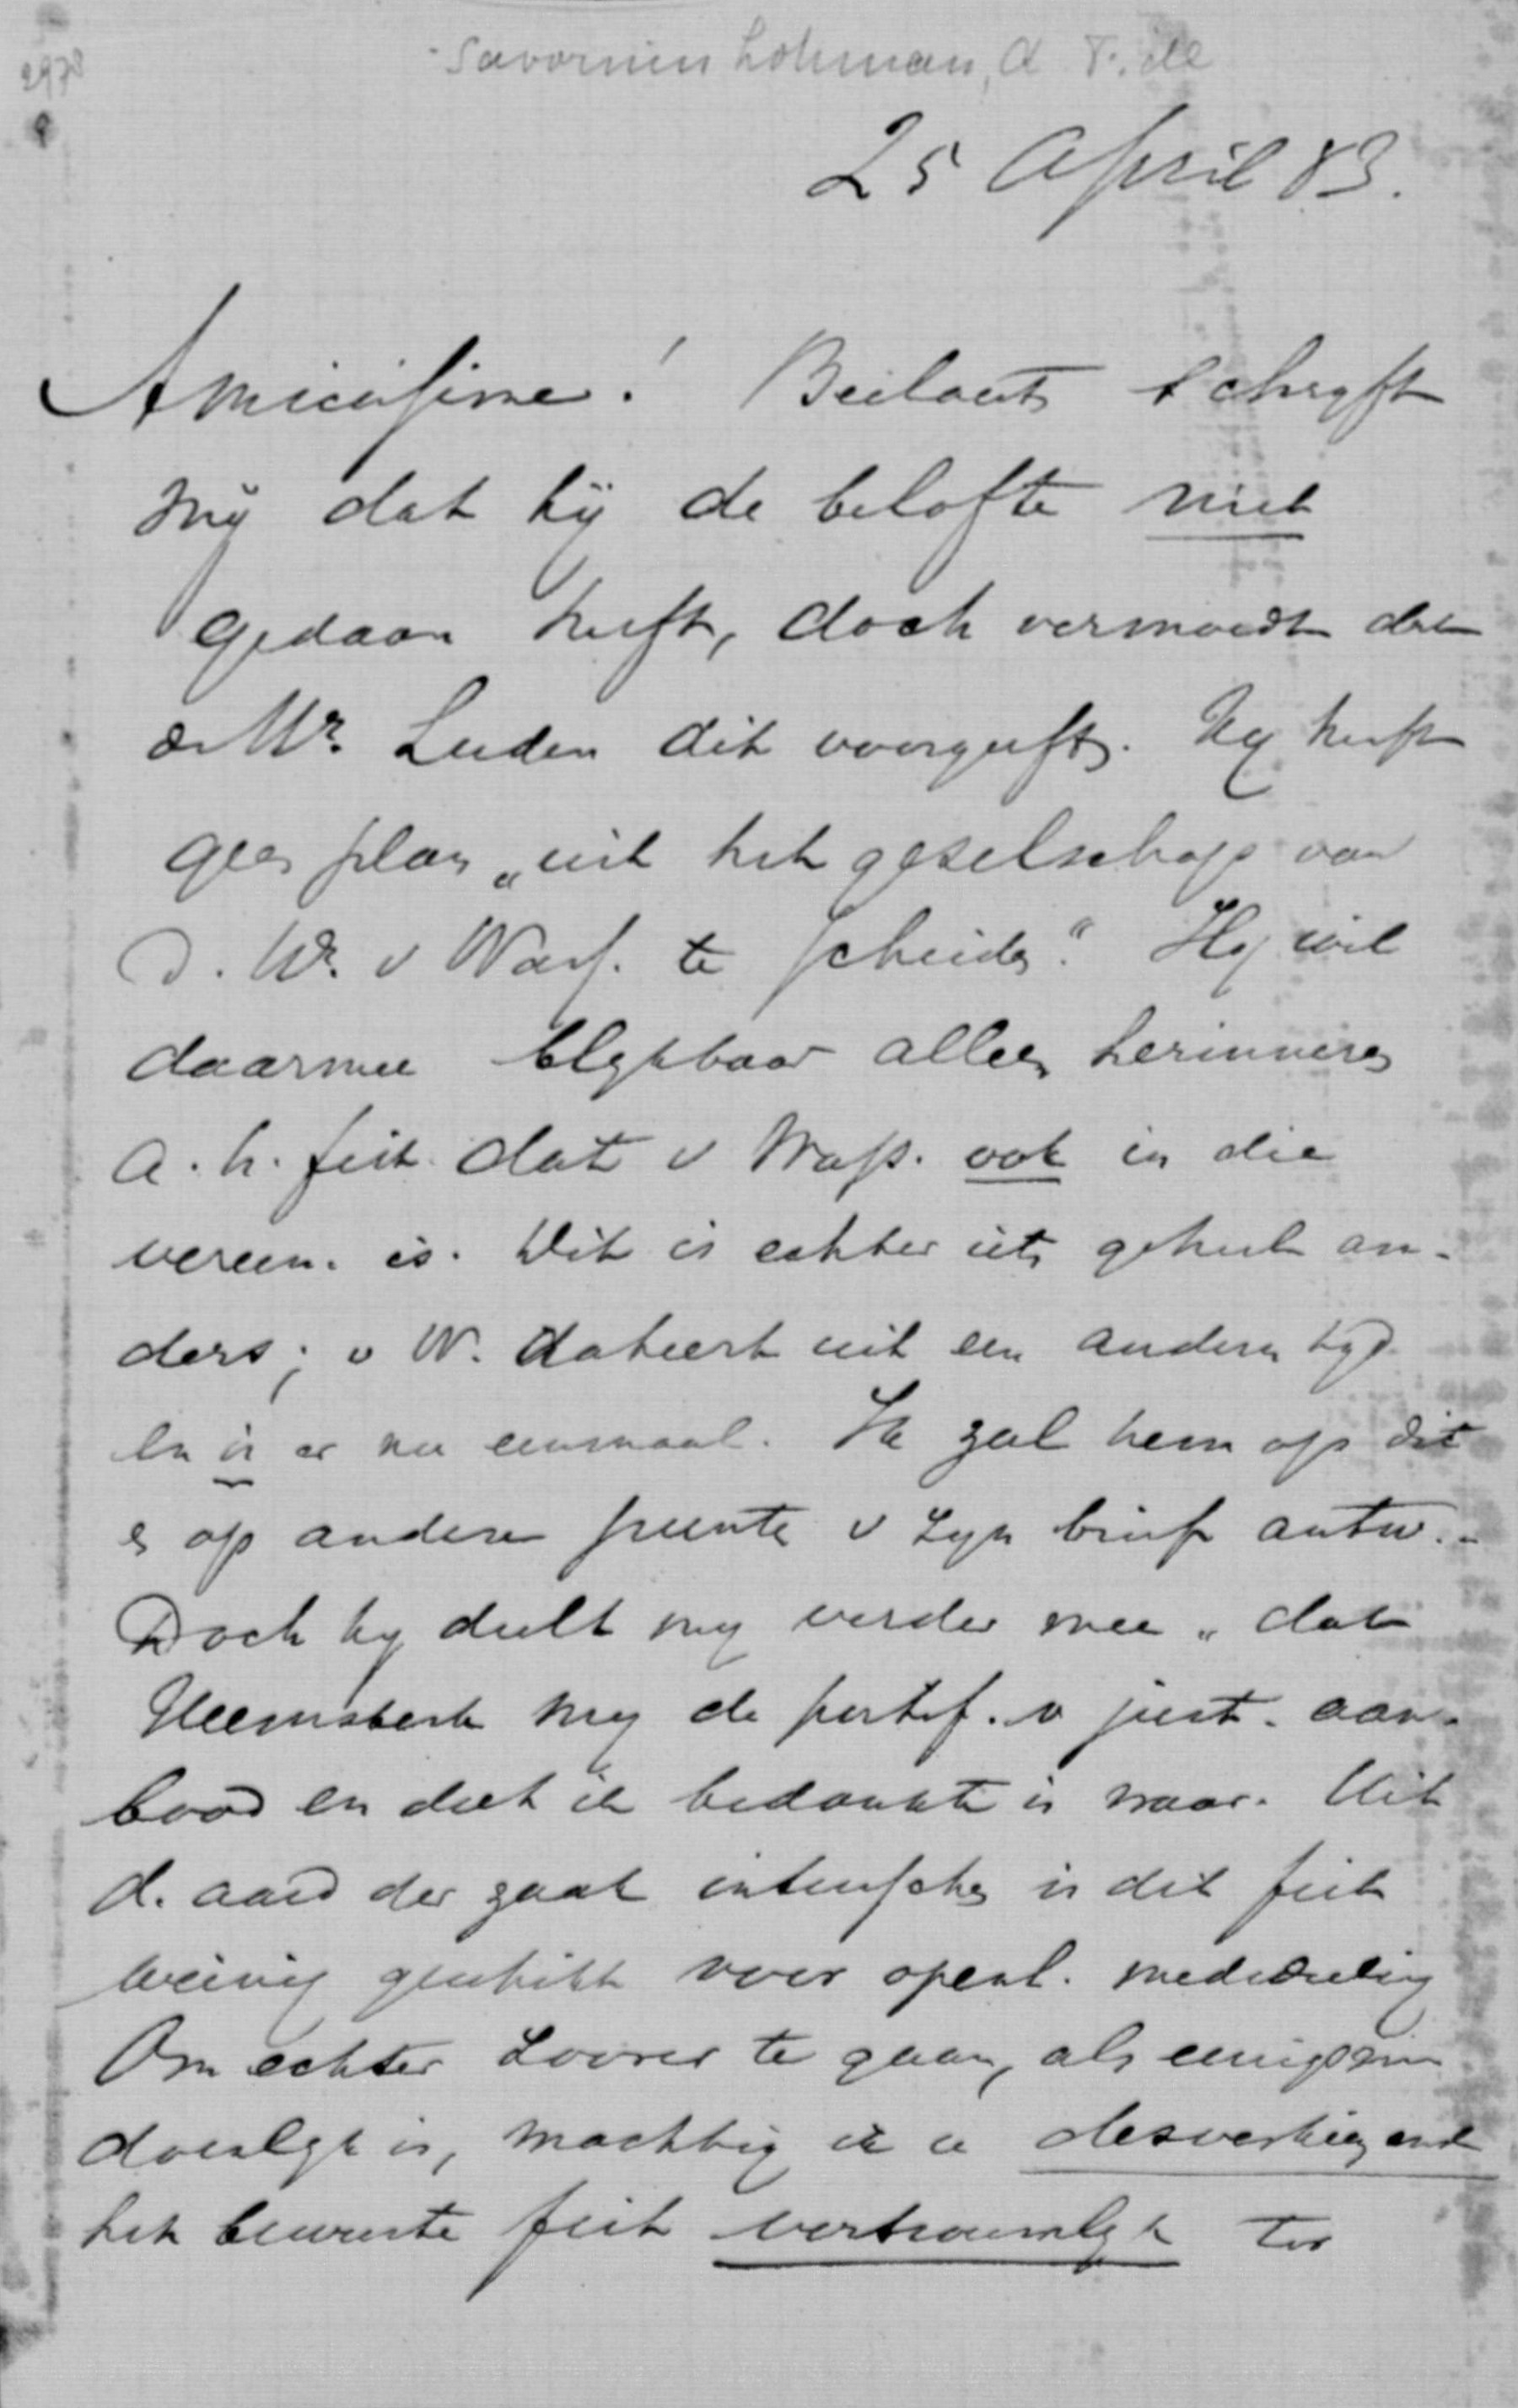 Savornin Lohman, A F. de
25 April 83.
Amicissime! Beelaerts schryft
mij dat hij de belofte niet
gedaan heeft, doch vermoedt dat
Mr. Luden dit voorgeeft. Hy heeft
geen plan „uit het geselschap van
d. Hr. v Wass. te scheiden." Hy wil
daarmee blykbaar alleen herinneren
a. h. feit dat v Wass. ook in die
vereen. is. Dit is echter iets geheel an-
ders; v W. dateert uit een anderen tyd
en is er nu eenmaal. Ik zal hem op dit
en op andere punten v zyn brief antw. -
Doch hy deelt my verder mee „dat
Heemskerk my de portef. v just. aan-
bood en dat ik bedankte is waar. Uit
d. aard der zaak intusschen is dit feit
weinig geschikt voor openl. mededeeling
Om echter zoover te gaan, als eenigszins
doenlyk is, machtig ik u desverkiezend
het bewuste feit vertrouwelyk ter